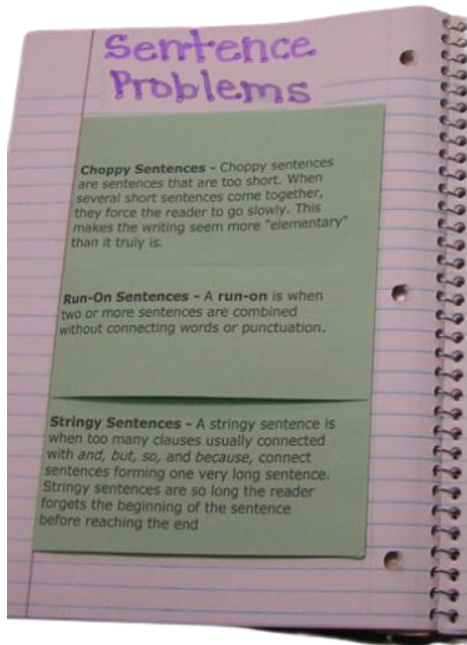 Sentence
Problems
Choppy Sentences - Choppy sentences
are sentences that are too short. When
several short sentences come together,
they force the reader to go slowly. This
makes the writing seem more "elementary"
than it truly is.
Run-On Sentences - A run-on is when
two or more sentences are combined
without connecting words or punctuation.
Stringy Sentences - A stringy sentence is
when too many clauses usually connected
with and, but, so, and because, connect
sentences forming one very long sentence.
Stringy sentences are so long the reader
forgets the beginning of the sentence
before reaching the end